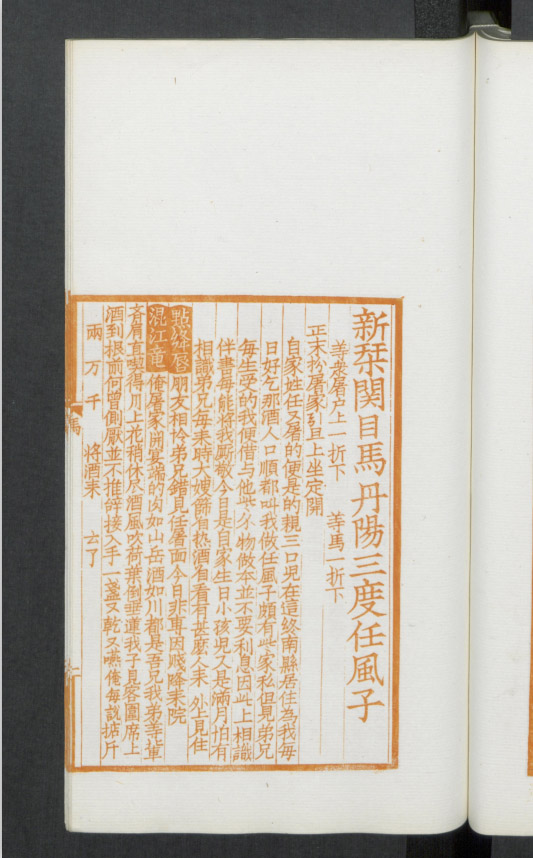 新栞関目馬丹陽三度任風子
等衆屠戶上一折下　等馬一折下
正末扮屠家引旦上坐定開
自家姓任又屠的便是的親三口児在這終南縣居住為我每
日好乞那酒人口順都叫我做任風子頗有些家私但見弟兄
每生受的我便借与他些小物做本並不要利息因此上相識
伴書每能將我厮敬今日是自家生日小孩児又是滿月怕有
相識弟兄每來時大嫂篩有热酒自看有甚麽人來　外上見住
點絳唇 朋友相怜弟兄錯見任屠面今日非專因賤降來院
混江竜 俺屠家開宴端的肉如山岳酒如川都是吾兄我弟等輩
齊肩直喫得川上花稍休尽酒風吹荷葉倒垂蓮我子見客圍席上
酒到根前何曾側厭並不推辞接入手一盞又乾又嚥俺每説掂斤
兩万千　將酒來　云了
馬